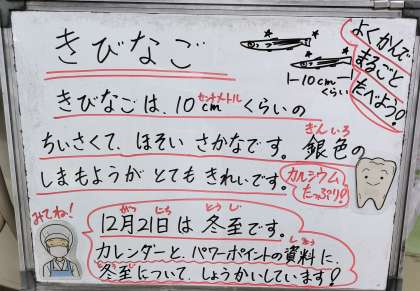 きびなご
よくかんで
まるごと
たべよう!
10cm
くらい
センチメートル
きびなごは、10cmくらいの
ちいさくて、ほそい さかなです。
ぎんいろ
銀色の
しまもようが とても きれいです。
カルシウム
たっぷり!
みてね!
がつ にち とうじ
12月21日は 冬至です。
しりょう
カレンダーと、パワーポイントの資料に、
とうじ
冬至について、しょうかいしています!